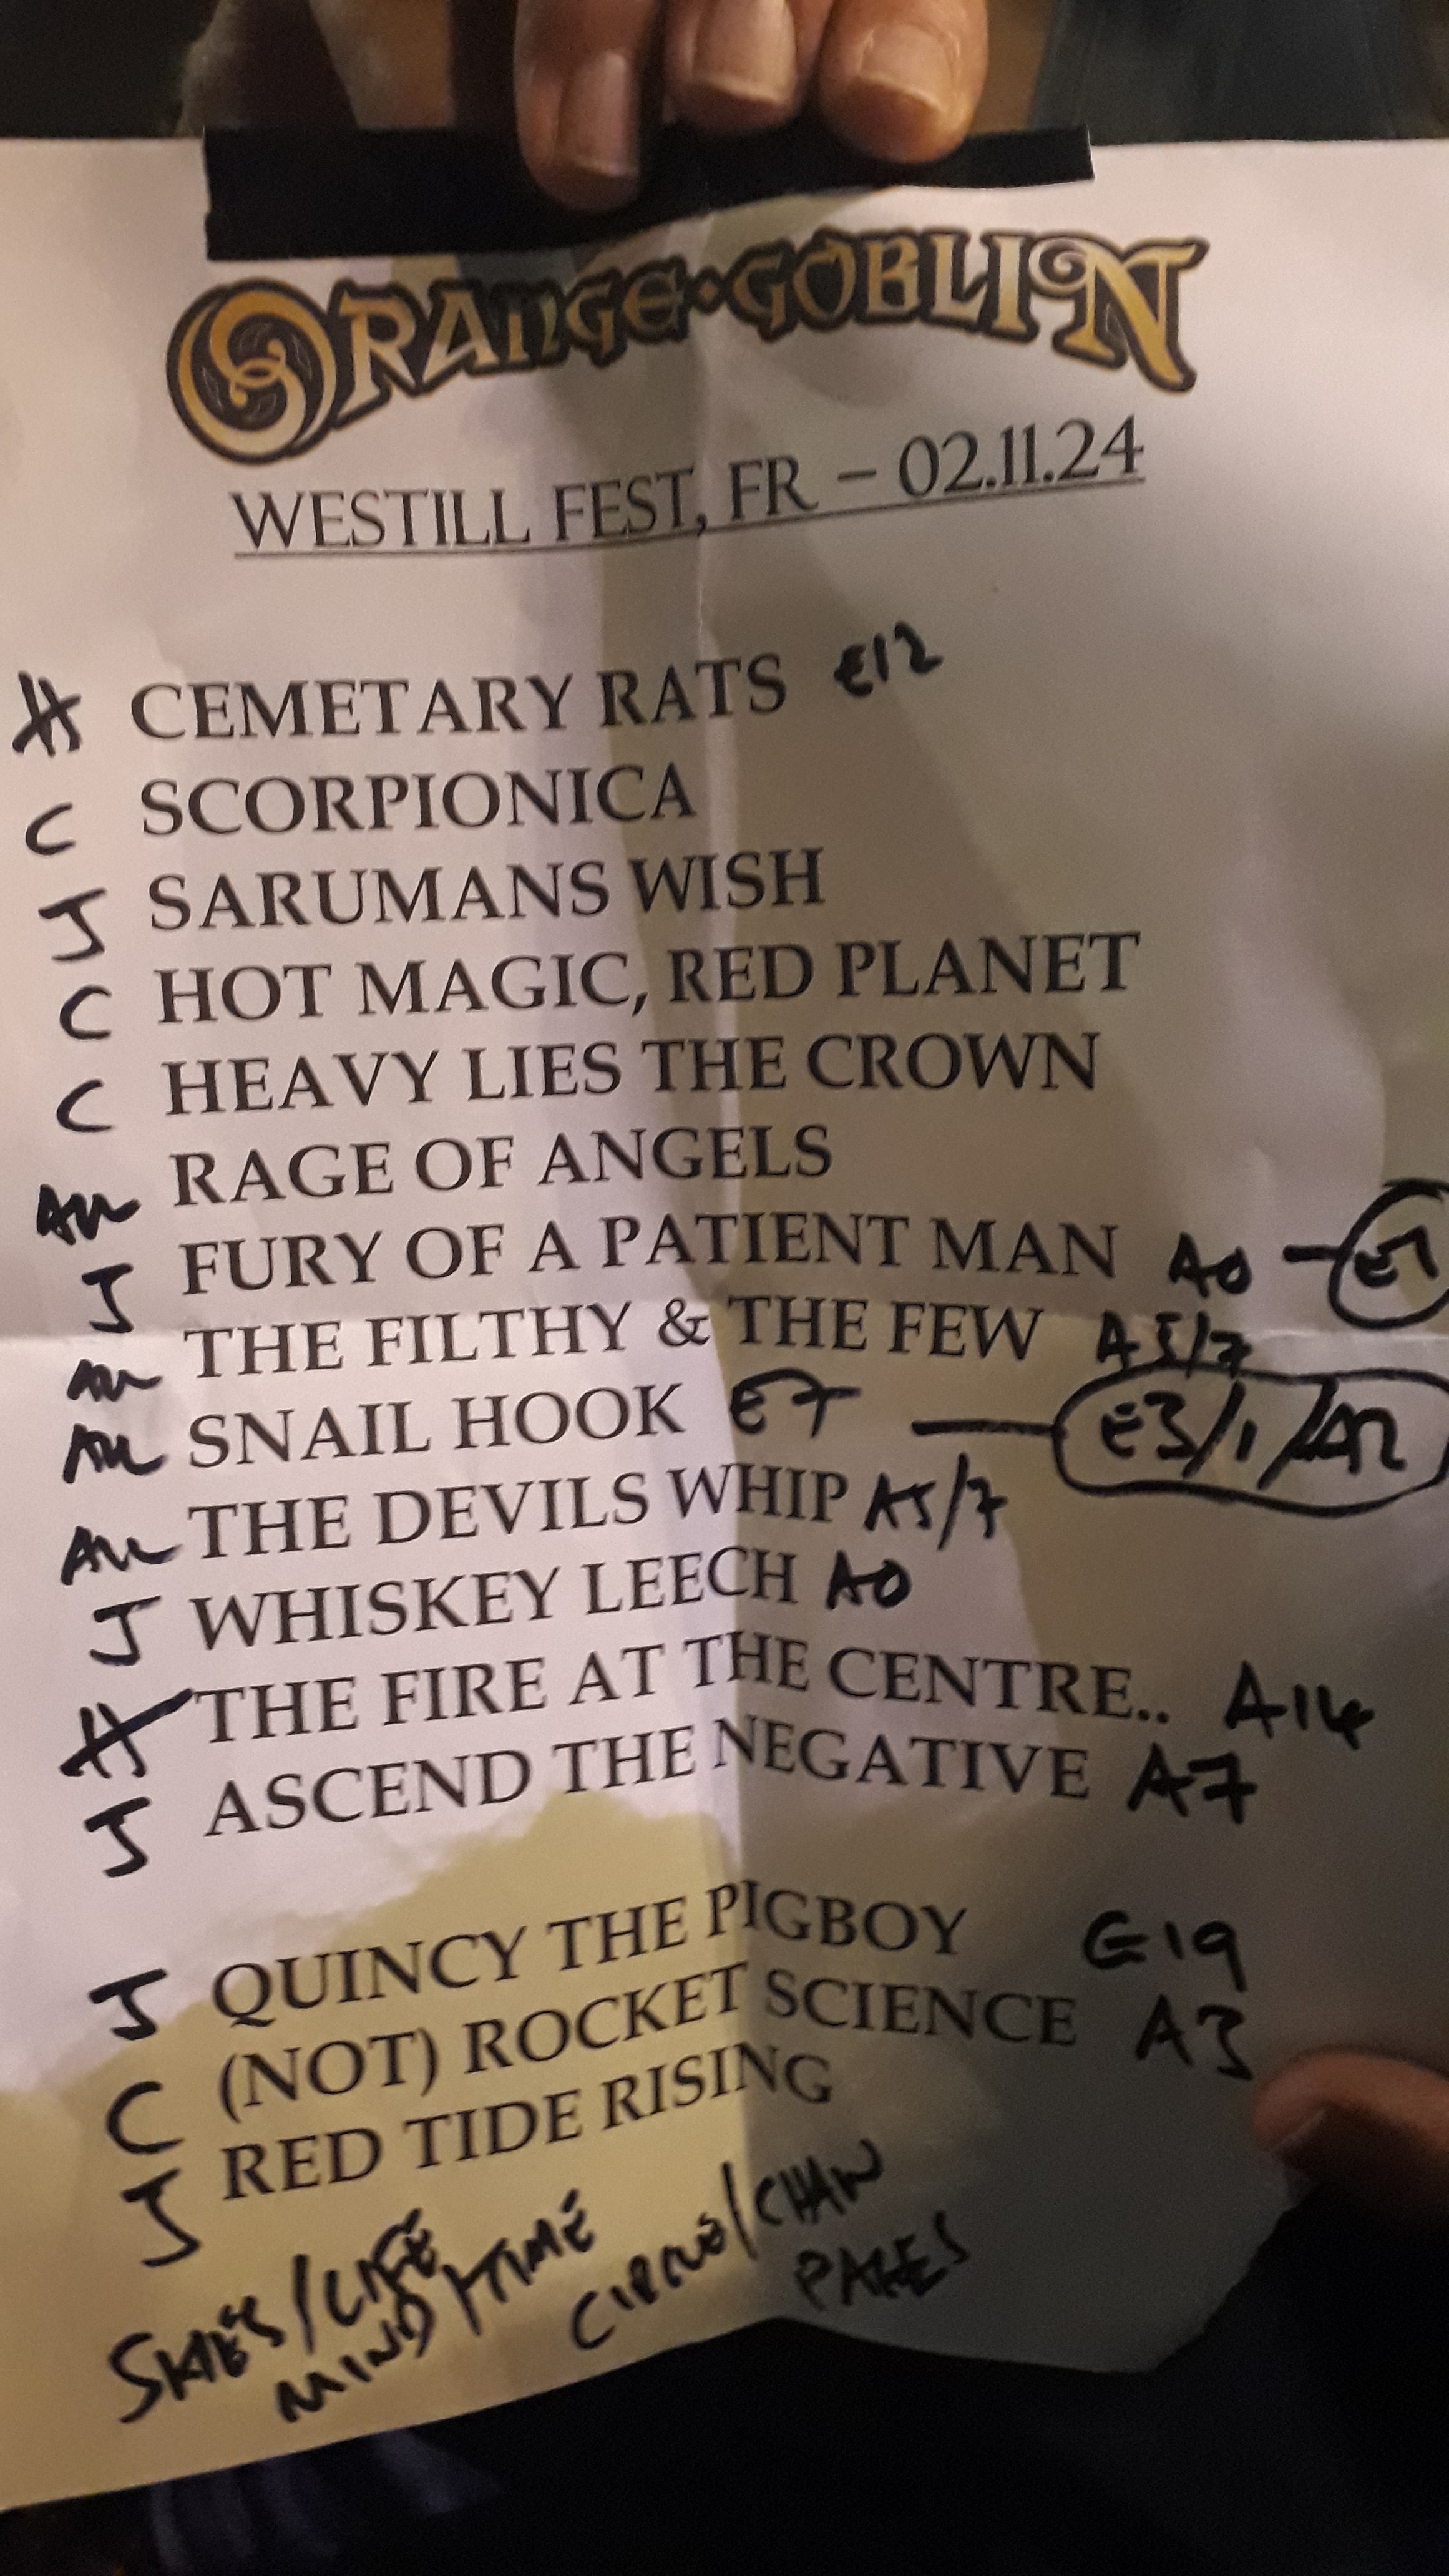 ORANGE·GOBLIN
WESTILL FEST, FR – 02.11.24
H CEMETARY RATS E12
C SCORPIONICA
J SARUMANS WISH
C HOT MAGIC, RED PLANET
C HEAVY LIES THE CROWN
ALL RAGE OF ANGELS
J FURY OF A PATIENT MAN A0 – E7
ALL THE FILTHY & THE FEW A5/7
ALL SNAIL HOOK E7 — E3/1/A12
ALL THE DEVILS WHIP A5/7
J WHISKEY LEECH A0
H THE FIRE AT THE CENTRE.. A14
J ASCEND THE NEGATIVE A7
J QUINCY THE PIGBOY G19
C (NOT) ROCKET SCIENCE A3
J RED TIDE RISING
SKIES/LIFE
MIND/TIME
CIRCUS/CHAN
PAGES